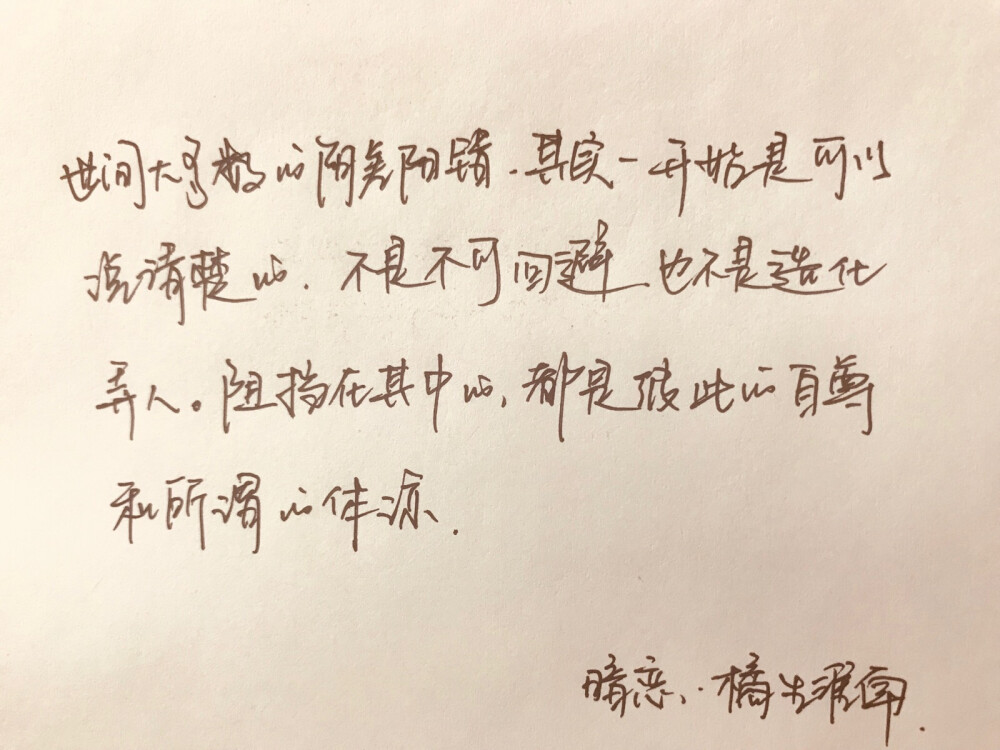 世间大多数的阴差阳错.其实一开始是可以
说清楚的.不是不可回避 也不是造化
弄人。阻挡在其中的,都是彼此的自尊
和所谓的体谅.
暗恋.橘生淮南.